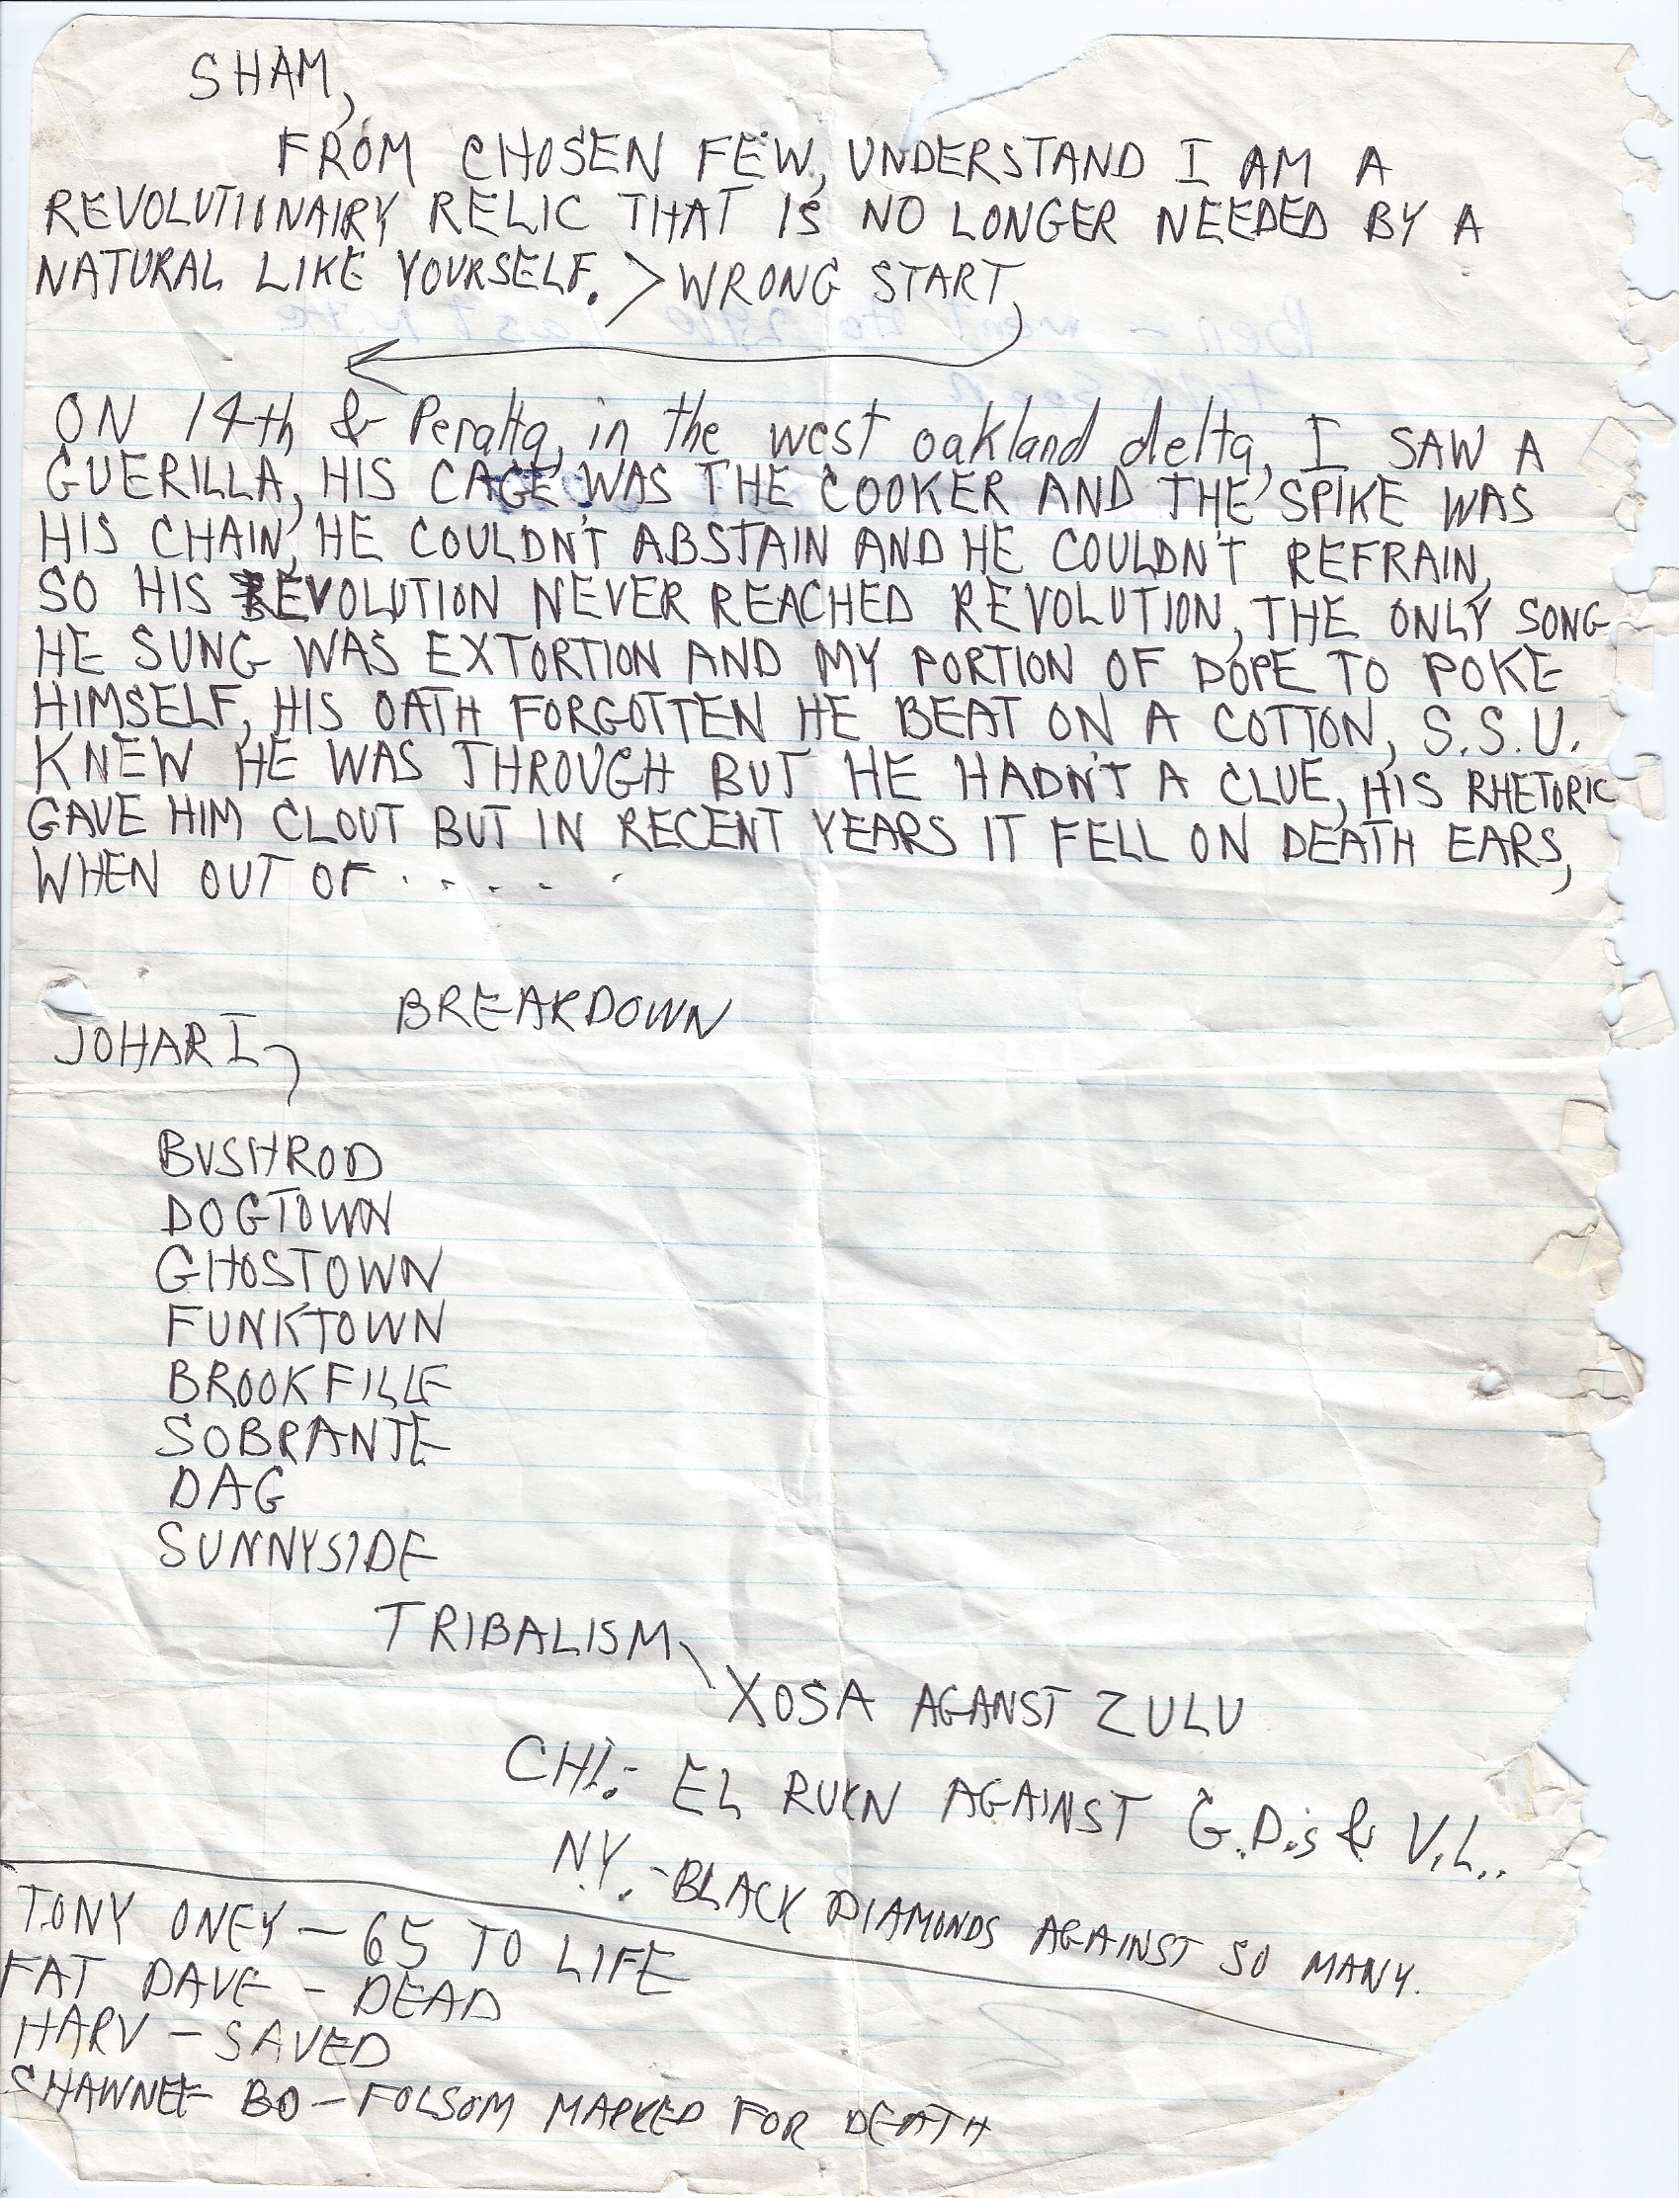 SHAM,
FROM CHOSEN FEW, UNDERSTAND I AM A
REVOLUTIINAIRY RELIC THAT IS NO LONGER NEEDED BY A
NATURAL LIKE YOURSELF. > WRONG START,
ON 14th & Peralta, in the west oakland delta, I SAW A
GUERILLA, HIS CAGE WAS THE COOKER AND THE SPIKE WAS
HIS CHAIN, HE COULDN'T ABSTAIN AND HE COULDN'T REFRAIN,
SO HIS EVOLUTION NEVER REACHED REVOLUTION, THE ONLY SONG
HE SUNG WAS EXTORTION AND MY PORTION OF DOPE TO POKE
HIMSELF, HIS OATH FORGOTTEN HE BEAT ON A COTTON, S.S.U.
KNEW HE WAS THROUGH BUT HE HADN'T A CLUE, HIS RHETORIC
GAVE HIM CLOUT BUT IN RECENT YEARS IT FELL ON DEATH EARS,
WHEN OUT OF . . . . .
BREAKDOWN
JOHARI,
BUSHROD
DOGTOWN
GHOSTOWN
FUNKTOWN
BROOKFILLE
SOBRANTE
DAG
SUNNYSIDE
TRIBALISM
XOSA AGANST ZULU
CHI.- EL RUKN AGAINST G.D.s & V.L..
N.Y. - BLACK DIAMONDS AGAINST SO MANY.
TONY ONEY - 65 TO LIFE
FAT DAVE - DEAD
HARV - SAVED
SHAWNEE BO - FOLSOM MARKED FOR DEATH